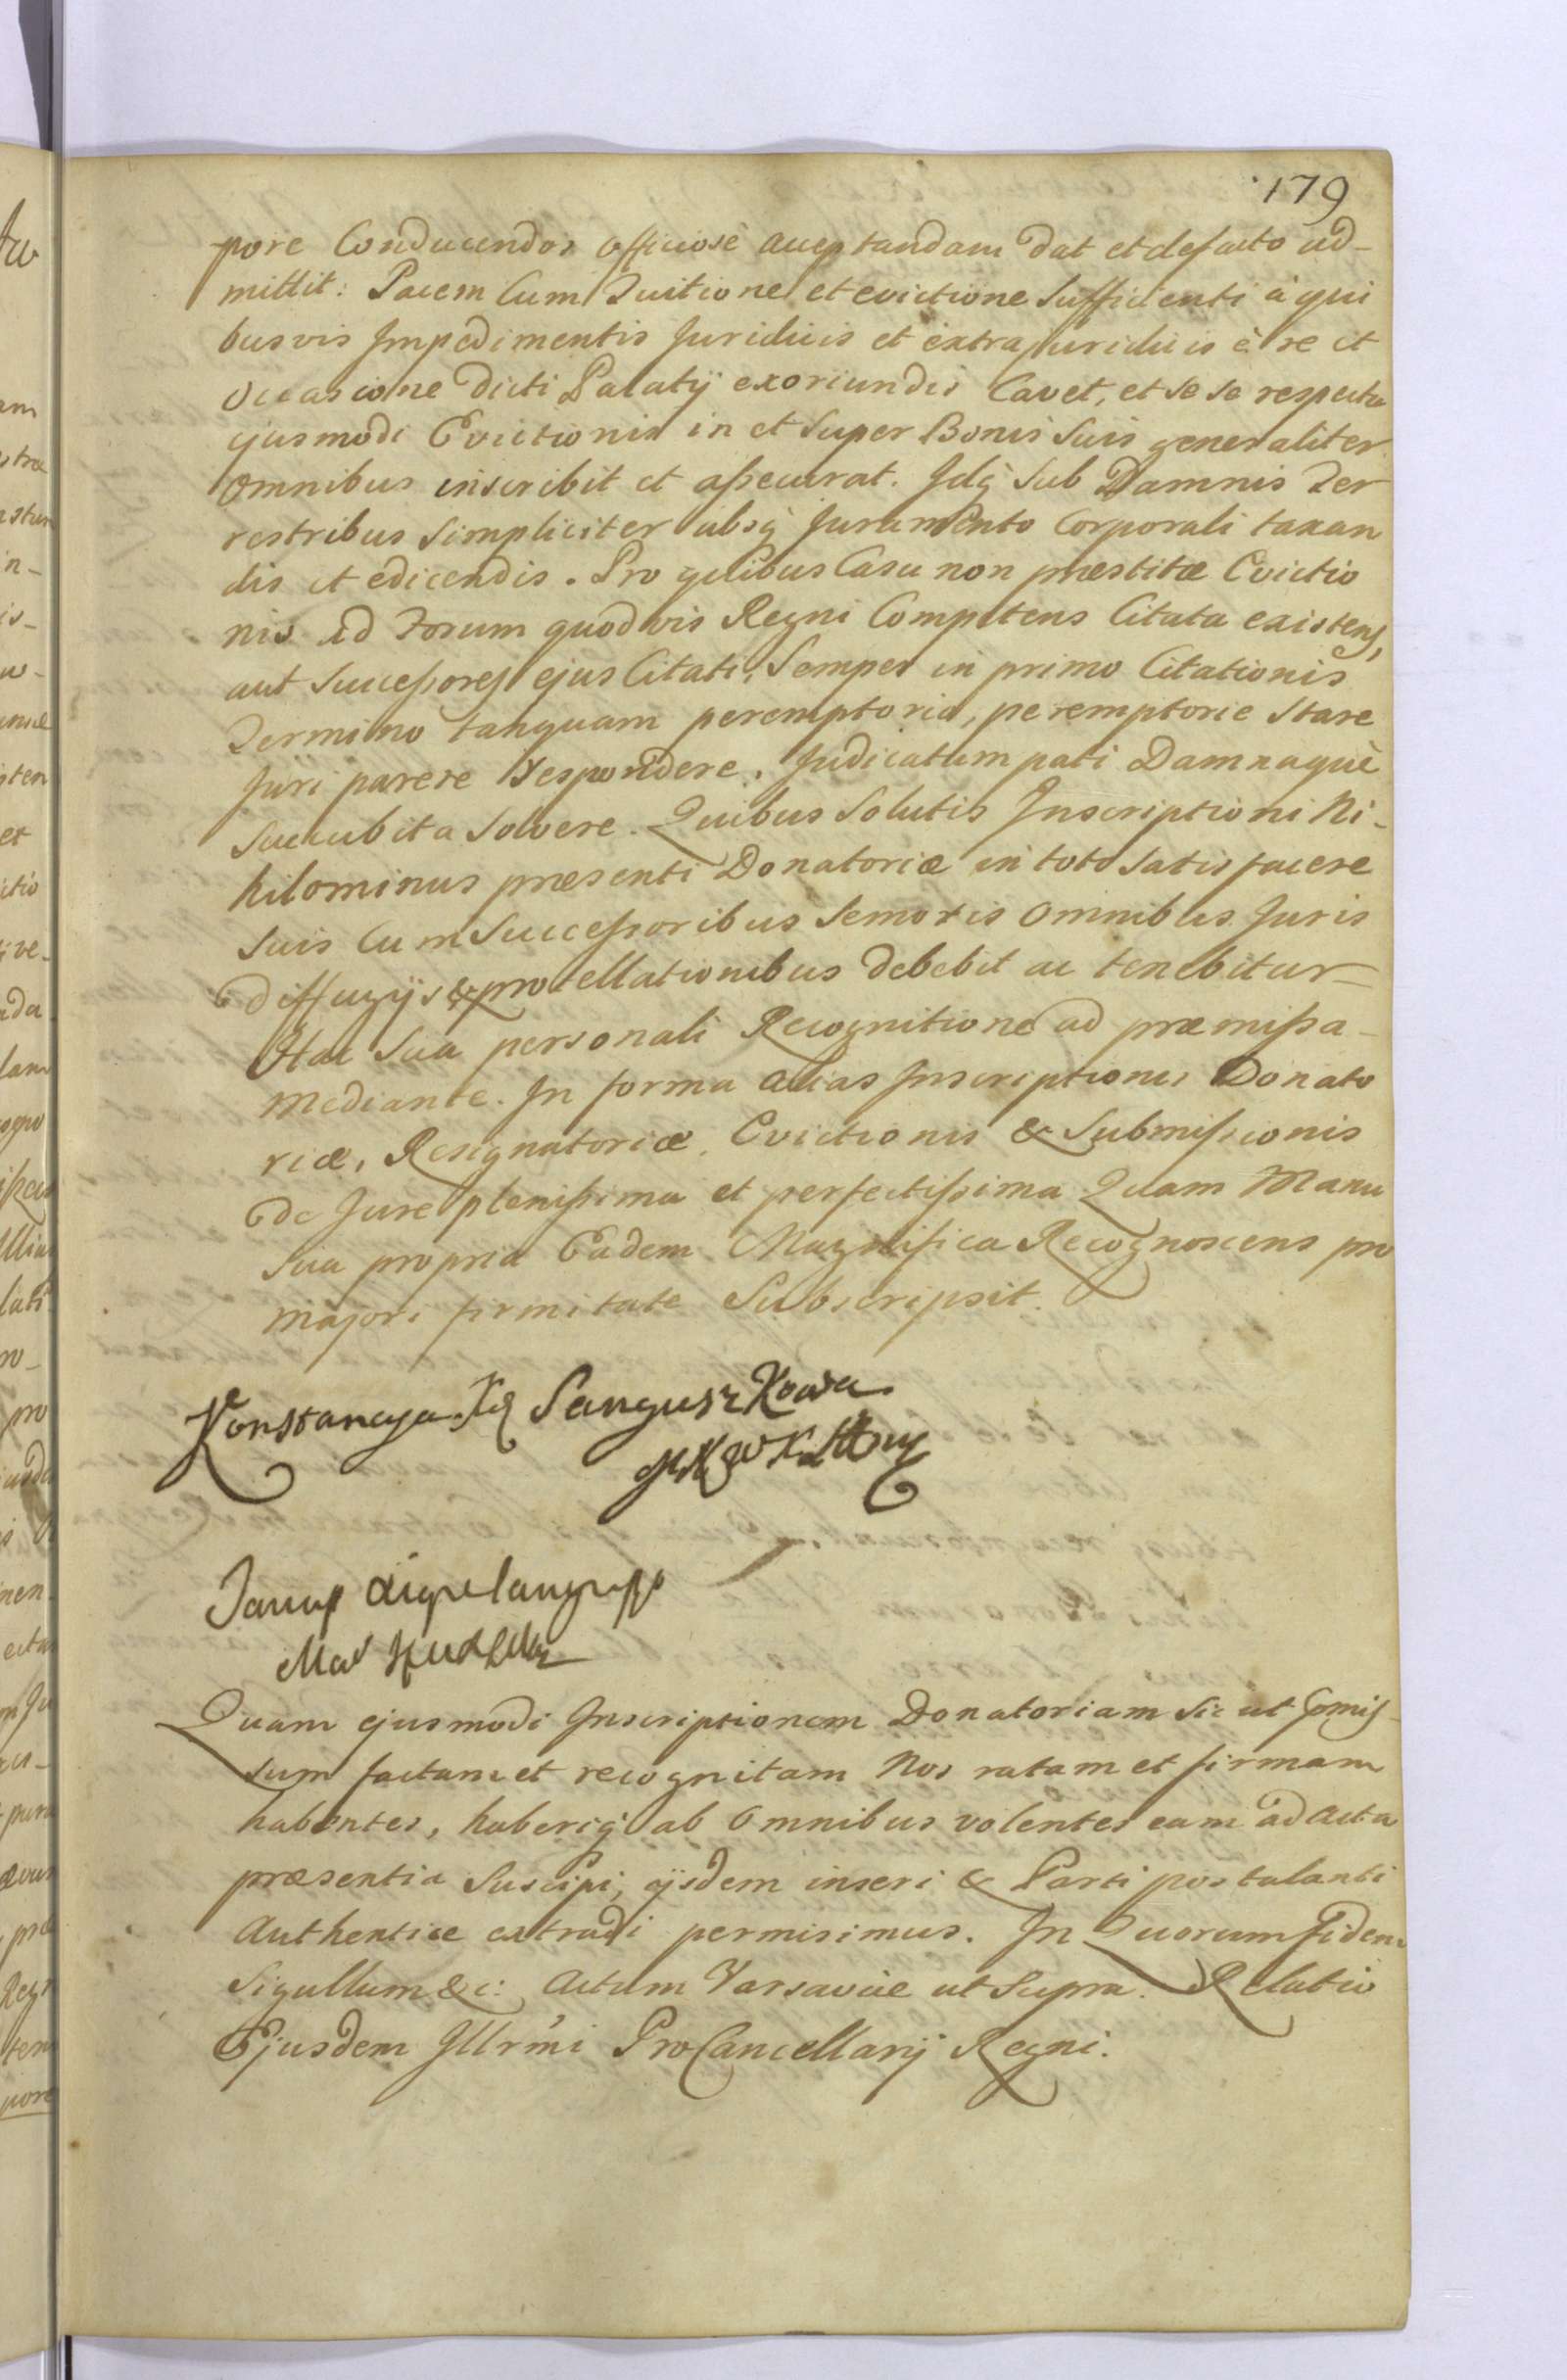 179
pore Conducendos officiosè acceptandam dat et defacto ad-
mittit: Pacem Cum Tuitione et evictione Sufficienti à qui
busvis Impedimentis Juridicis et extrajuridicis è re et
Occasione dicti Palatij exoriundis Cavet, et se se respectu
ejusmodi Evictionis in et Super Bonis Suis generaliter
Omnibus inscribit et assecurat. Idq́ Sub Damnis Ter
restribus Simpliciter absq́ Juramento Corporali taxan
dis et edicendis. Pro quibus Casu non præstitæ Evictio
nis ad Forum quodvis Regni Competens Citata existens,
aut Successores ejus Citati, Semper in primo Citationis
Termino tanquam peremptorio, peremptorie Stare
Juri parere respondere, Judicatum pati Damnaquè
Succubita Solvere. Quibus Solutis Inscriptioni Ni-
hilominus præsenti Donatoriæ in toto Satisfacere
Suis Cum Successoribus Semotis Omnibus Juris
diffugijs & procellationibus debebit ac tenebitur
Hac Sua personali Recognitione ad præmissa
Mediante. In forma alias Inscriptionis Donato
riæ, Resignatoriæ, Evictionis & Submissionis
de Jure plenissima et perfectissima Quam Manu
Sua propria Eadem Magnifica Recognoscens pro
majori firmitate Subscripsit.
Konstancya Sanguszkowa
Quam ejusmodi Inscriptionem Donatoriam Sic ut pmis-
sum factam et recognitam Nos ratam et firmam
habentes, haberiq́ ab Omnibus volentes eam ad Acta
præsentia Suscipi, ijsdem inseri & Parti postulanti
Authentice extradi permisimus. In Quorum Fidem
Sigillum &c: Actum Varsaviæ ut Supra. Relatio
Ejusdem Illrmi ProCancellarij Regni.